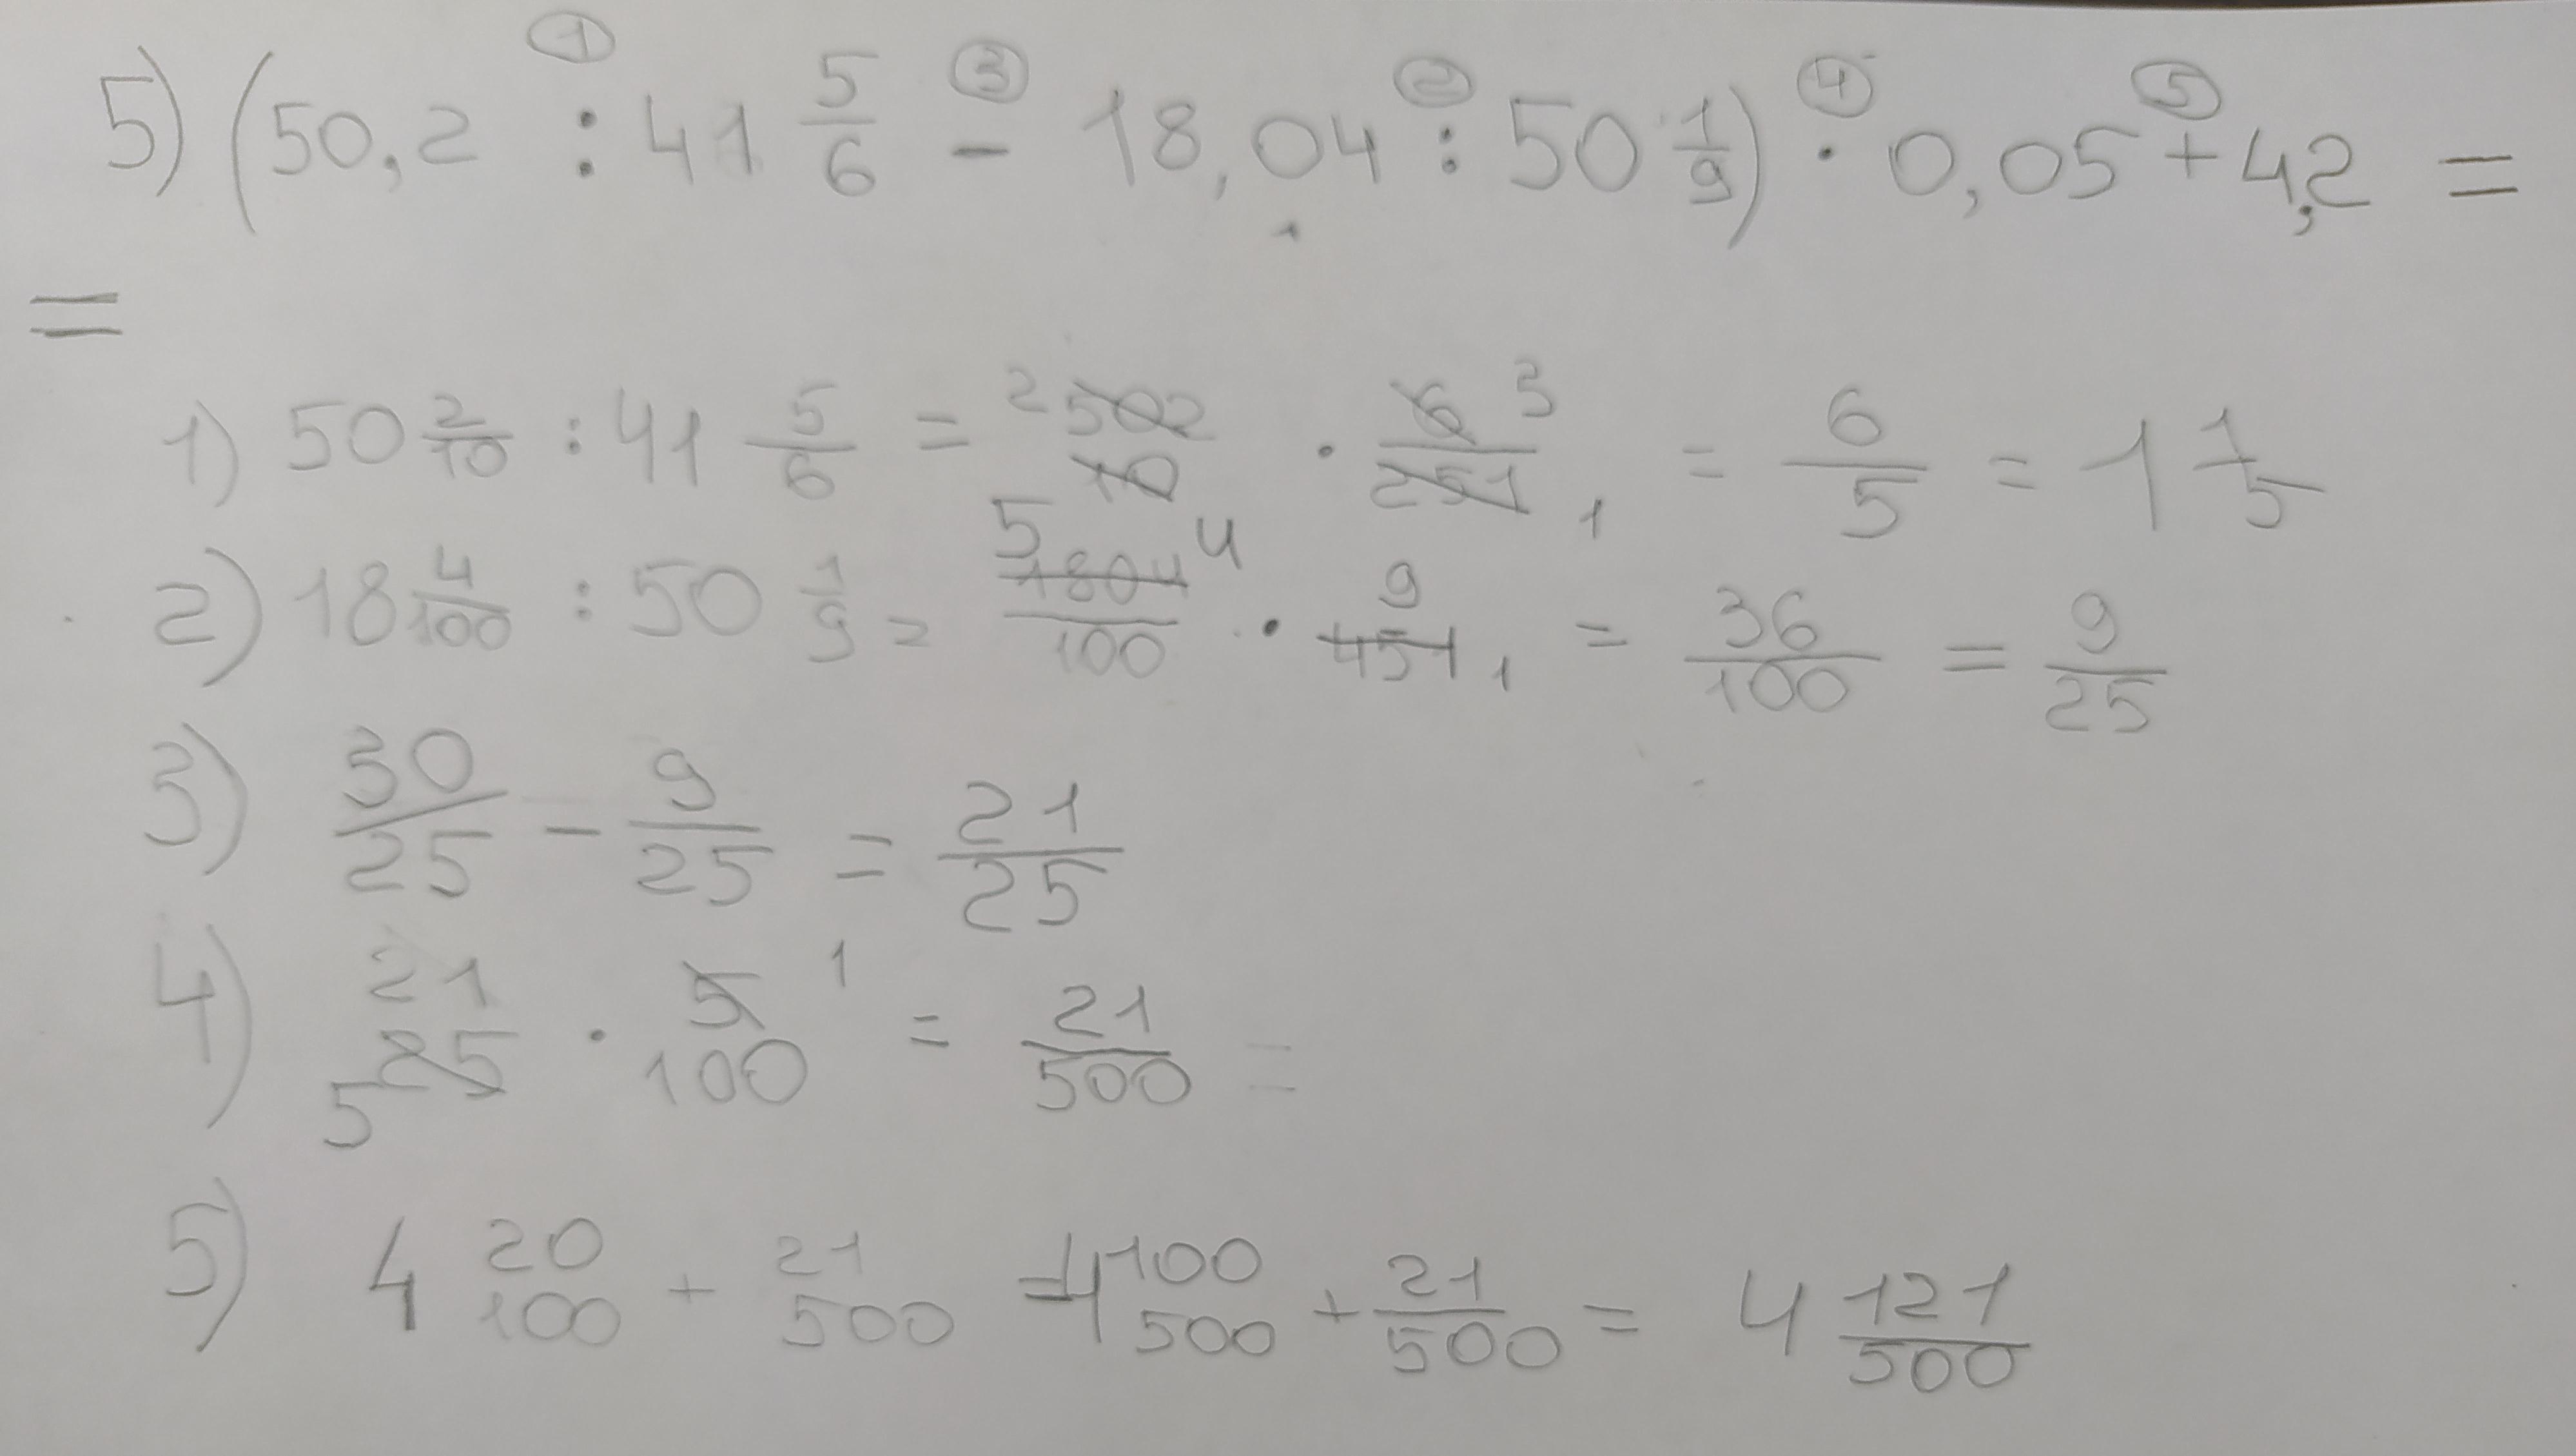 5) (50,2 : 41 5/6 - 18,04 : 50 1/9) · 0,05 + 4,2 =
① ③ ② ④ ⑤
=
1) 50 2/10 : 41 5/6 = 502/10 · 6/251 = 6/5 = 1 1/5
2 5 3 1
2) 18 4/100 : 50 1/9 = 1804/100 · 9/451 = 36/100 = 9/25
4 1
3) 30/25 - 9/25 = 21/25
4) 21/25 · 5/100 = 21/500 =
5 1
5) 4 20/100 + 21/500 = 4 100/500 + 21/500 = 4 121/500